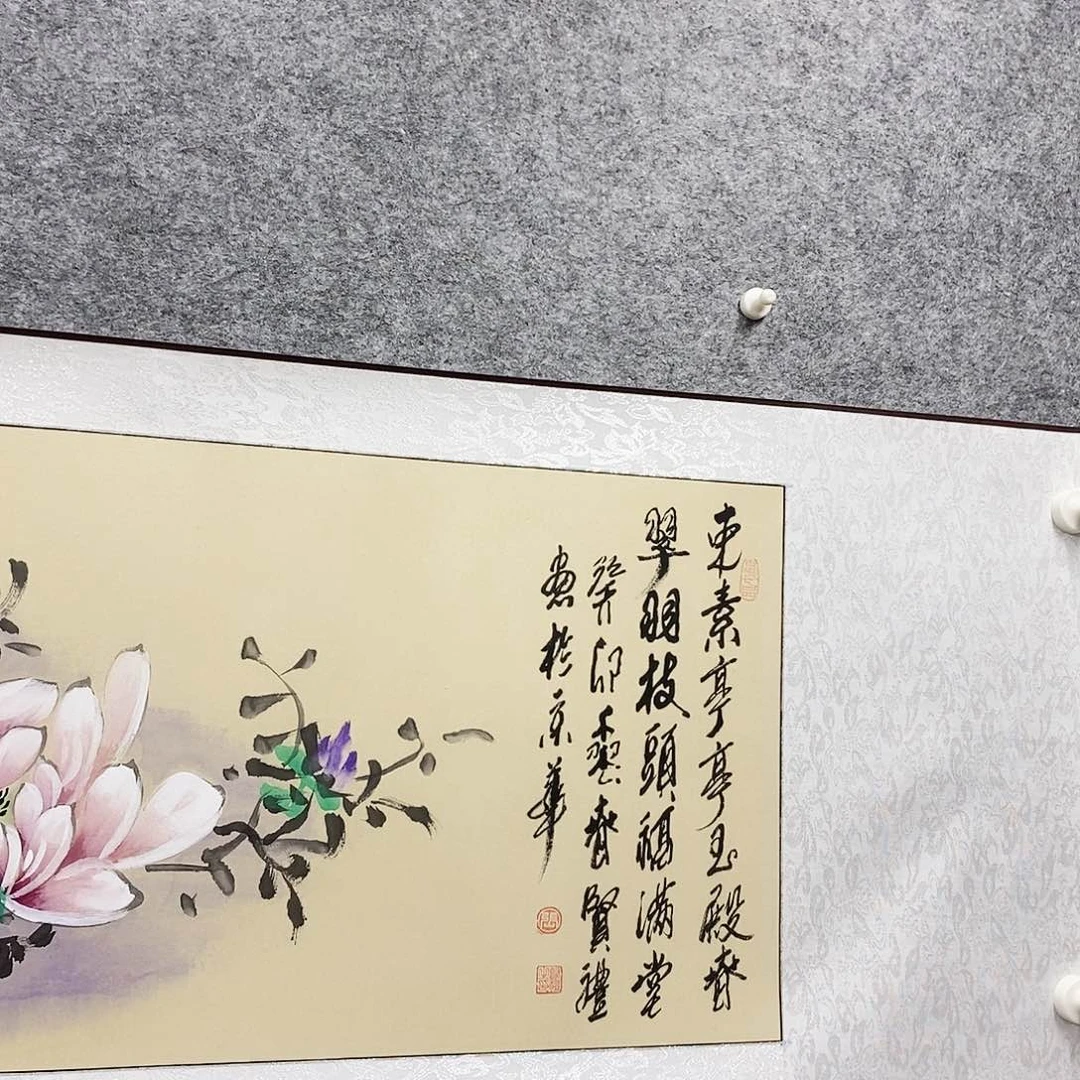 束素亭亭玉殿春
翠羽枝頭福满堂
癸卯春賢禮
畫於京華